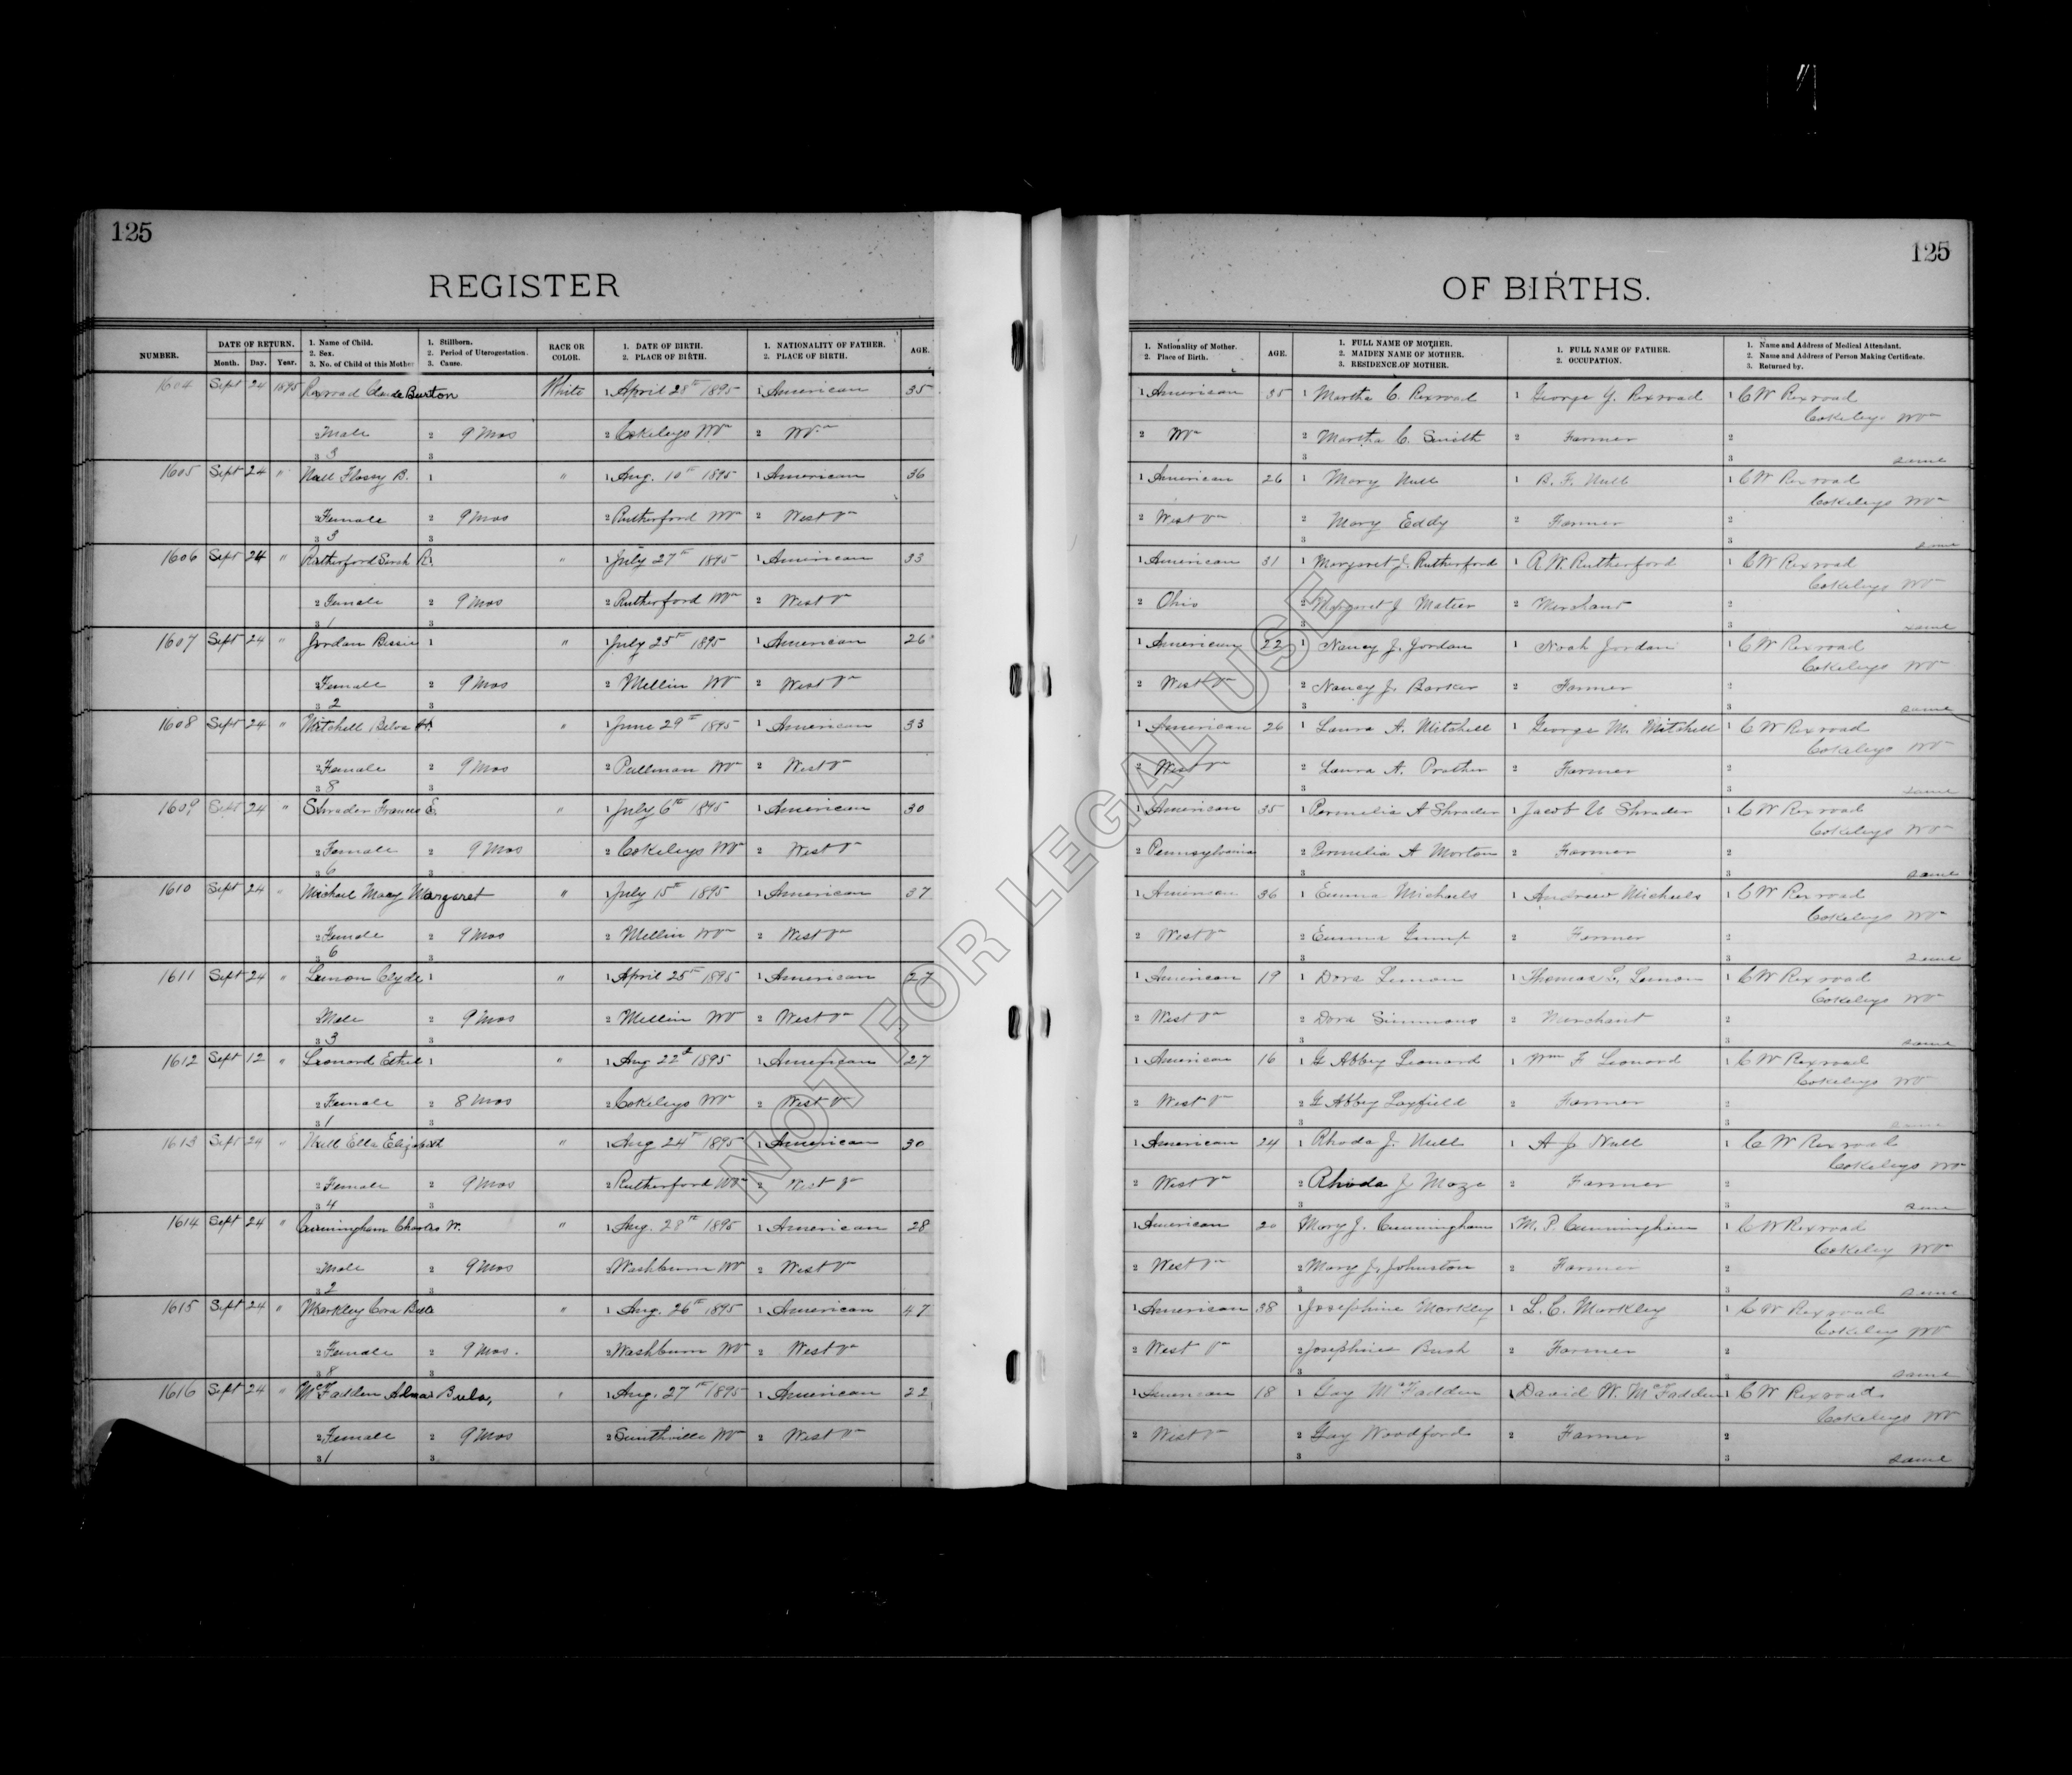 125
REGISTER
NUMBER. DATE OF RETURN. Month. Day. Year. 1. Name of Child. 2. Sex. 3. No. of Child of this Mother 1. Stillborn. 2. Period of Uterogestation. 3. Cause. RACE OR COLOR. 1. DATE OF BIRTH. 2. PLACE OF BIRTH. 1. NATIONALITY OF FATHER. 2. PLACE OF BIRTH. AGE.
1604 Sept 24 1895 Rexroad Claude Burton White 1 April 28th 1895 1 American 35
2 Male 2 9 Mos 2 Cokeleys WVa 2 WVa
3 3 3
1605 Sept 24 " Null Flossy B. 1 " 1 Aug. 10th 1895 1 American 36
2 Female 2 9 Mos 2 Rutherford WVa 2 West Va
3 3 3
1606 Sept 24 " Rutherford Sarah R. " 1 July 27th 1895 1 American 33
2 Female 2 9 Mos 2 Rutherford WVa 2 West Va
3 1 3
1607 Sept 24 " Jordan Bessie 1 " 1 July 25th 1895 1 American 26
2 Female 2 9 Mos 2 Mellin WV 2 West Va
3 2 3
1608 Sept 24 " Mitchell Belva A. " 1 June 29th 1895 1 American 33
2 Female 2 9 Mos 2 Pullman WVa 2 West Va
3 8 3
1609 Sept 24 " Shrader Frances E. " 1 July 6th 1895 1 American 30
2 Female 2 9 Mos 2 Cokeleys WVa 2 West Va
3 6 3
1610 Sept 24 " Michael Macy Margaret " 1 July 15th 1895 1 American 37
2 Female 2 9 Mos 2 Mellin WVa 2 West Va
3 6 3
1611 Sept 24 " Lemon Clyde 1 " 1 April 25th 1895 1 American 27
2 Male 2 9 Mos 2 Mellin WV 2 West Va
3 3 3
1612 Sept 12 " Leonard Ethel 1 " 1 Aug 22d 1895 1 American 27
2 Female 2 8 Mos 2 Cokeleys WVa 2 West Va
3 1 3
1613 Sept 24 " Null Ella Elizabeth " 1 Aug 24th 1895 1 American 30
2 Female 2 9 Mos 2 Rutherford WVa 2 West Va
3 4 3
1614 Sept 24 " Cunningham Charles W. " 1 Aug. 28th 1895 1 American 28
2 Male 2 9 Mos 2 Washburn WV 2 West Va
3 2 3
1615 Sept 24 " Markley Cora Belle " 1 Aug. 26th 1895 1 American 47
2 Female 2 9 Mos. 2 Washburn WV 2 West Va
3 8 3
1616 Sept 24 " McFadden Beula, " 1 Aug. 27th 1895 1 American 22
2 Female 2 9 Mos 2 Smithville WV 2 West Va
3 1 3
125
OF BIRTHS.
1. Nationality of Mother. 2. Place of Birth. AGE. 1. FULL NAME OF MOTHER. 2. MAIDEN NAME OF MOTHER. 3. RESIDENCE OF MOTHER. 1. FULL NAME OF FATHER. 2. OCCUPATION. 1. Name and Address of Medical Attendant. 2. Name and Address of Person Making Certificate. 3. Returned by.
1 American 35 1 Martha C. Rexroad 1 George Y. Rexroad 1 C W Rexroad
Cokeleys WVa
2 WVa 2 Martha C. Smith 2 Farmer 2
3 3 same
1 American 26 1 Mary Null 1 B. F. Null 1 C W Rexroad
Cokeleys WVa
2 West Va 2 Mary Eddy 2 Farmer 2
3 3 same
1 American 31 1 Margaret J. Rutherford 1 R W. Rutherford 1 C W Rexroad
Cokeleys WV
2 Ohio 2 Margaret J 2 Merchant 2
3 3 same
1 American 22 1 Nancy J. Jordan 1 Noah Jordan 1 C W Rexroad
Cokeleys WV
2 West Va 2 Nancy J. Barker 2 Farmer 2
3 3 same
1 American 26 1 Laura A. Mitchell 1 George M. Mitchell 1 C W Rexroad
Cokeleys WV
2 West Va 2 Laura A. Prather 2 Farmer 2
3 3 same
1 American 35 1 Permelia A Shrader 1 Jacob U Shrader 1 C W Rexroad
Cokeleys WVa
2 Pennsylvania 2 Permelia A Morton 2 Farmer 2
3 3 same
1 American 36 1 Emma Michaels 1 Andrew Michaels 1 C W Rexroad
Cokeleys WVa
2 West Va 2 Emma Gump 2 Farmer 2
3 3 same
1 American 19 1 Dora Lemon 1 Thomas L. Lemon 1 C W Rexroad
Cokeleys WV
2 West Va 2 Dora Simmons 2 Merchant 2
3 3 same
1 American 16 1 G Abbey Leonard 1 Wm F Leonard 1 C W Rexroad
Cokeleys WV
2 West Va 2 G Abbey Layfield 2 Farmer 2
3 3 same
1 American 24 1 Rhoda J. Null 1 A J Null 1 C W Rexroad
Cokeleys WV
2 West Va 2 Rhoda J Maze 2 Farmer 2
3 3 same
1 American 20 1 Mary J. Cunningham 1 M. P. Cunningham 1 C W Rexroad
Cokeley WVa
2 West Va 2 Mary J. Johnston 2 Farmer 2
3 3 same
1 American 38 1 Josephine Markley 1 L. C. Markley 1 C W Rexroad
Cokeley WV
2 West Va 2 Josephine Bush 2 Farmer 2
3 3 same
1 American 18 1 Gay McFadden 1 David W. McFadden 1 C W Rexroad
Cokeleys WV
2 West Va 2 Gay Woodford 2 Farmer 2
3 3 same
NOT FOR LEGAL USE